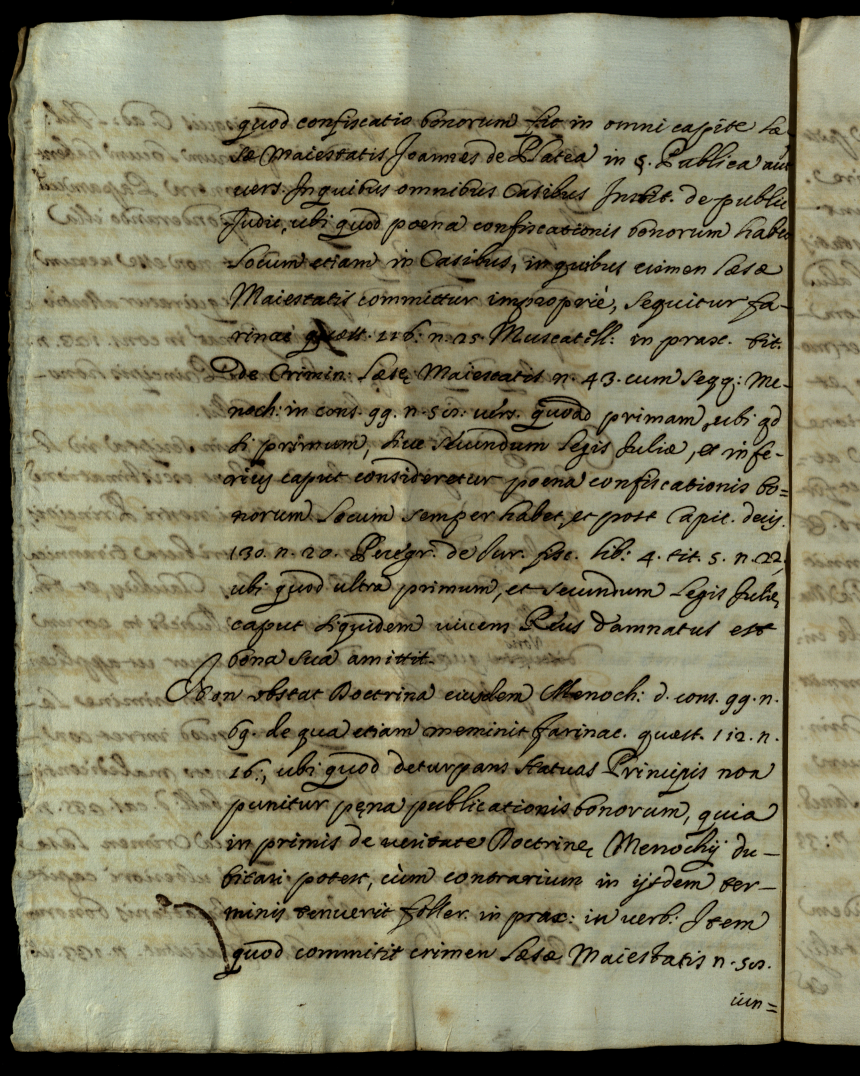 quod confiscatio bonorum fit in omni capite læ
sæ Maiestatis Joannes de Platea in §. Publica aut
vers. In quibus omnibus Casibus Instit. de public
Judic, ubi quod poena confiscationis bonorum habet
locum etiam in Casibus, in quibus crimen læsæ
Maiestatis committur impropriè, sequitur fa-
rinac quæst. 116: n. 25. Muscatell: in prax. tit.
de Crimin: læsę Maiestatis n. 43. cum seqq: Me-
noch: in cons. 99. n. 50. vers. quoad primam, ubi qd
si primum, sive secundum legis Juliæ, et infe-
rius caput consideretur poena confiscationis bo=
norum locum semper habet, et post Capic. decis.
130. n. 20. Peregr. de Iur. fisc. lib: 4. tit. 5. n. 22.
ubi quod ultra primum, et secundum legis Julię
caput siquidem vivens Reus damnatus est
bona sua amittit.
Non obstat Doctrina eiusdem Menoch: d. cons. 99. n.
69. de qua etiam meminit farinac. quæst. 112. n.
16:, ubi quod deturpans statuas Principis non
punitur pęna publicationis bonorum, quia
in primis de veritate Doctrinę Menochij du-
bitari potest, cùm contrarium in ijsdem ter-
minis tenuerit foller. in prax: in verb: Item
quod commitit crimen læsæ Maiestatis n. 50.
cun=